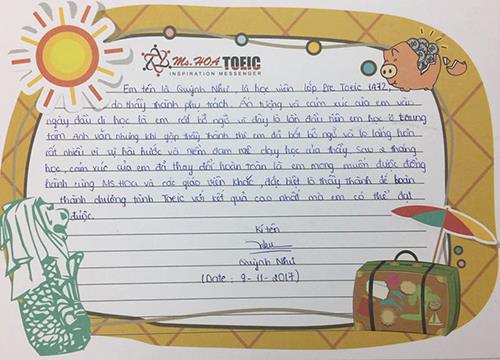 Ms.HOA TOEIC
INSPIRATION MESSENGER
Em tên là Quỳnh Như, là học viên lớp Pre Toeic 1472,
do thầy Thành phụ trách. Ấn tượng và cảm xúc của em vào
ngày đầu đi học là em rất bỡ ngỡ vì đây là lần đầu tiên em học ở trung
tâm Anh văn nhưng khi gặp thầy Thành thì em đã bớt bỡ ngỡ và lo lắng hơn
rất nhiều vì sự hài hước và niềm đam mê dạy học của thầy. Sau 2 tháng
học, cảm xúc của em đã thay đổi hoàn toàn là em mong muốn được đồng
hành cùng MS.HOA và các giáo viên khác, đặc biệt là thầy Thành để hoàn
thành chương trình Toeic với kết quả cao nhất mà em có thể đạt
được.
Kí tên
Như
Quỳnh Như
(Date: 9-11-2017)